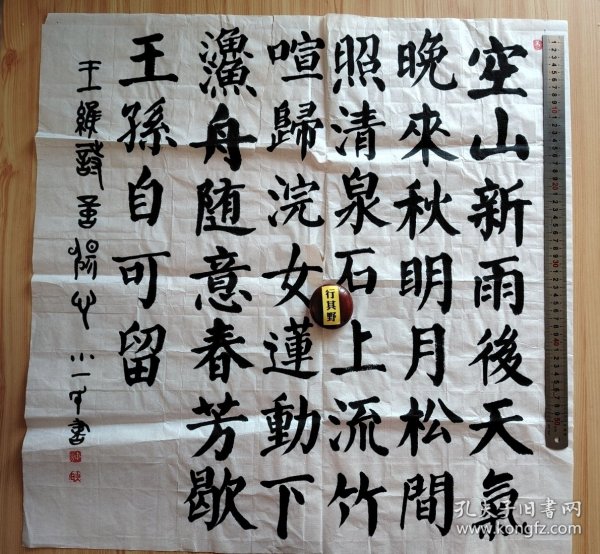 空山新雨後天氣
晚來秋明月松間
照清泉石上流竹
喧歸浣女蓮動下
漁舟随意春芳歇
王孫自可留
王維詩
小一
書
行其野
孔夫子旧书网
www.kongfz.com